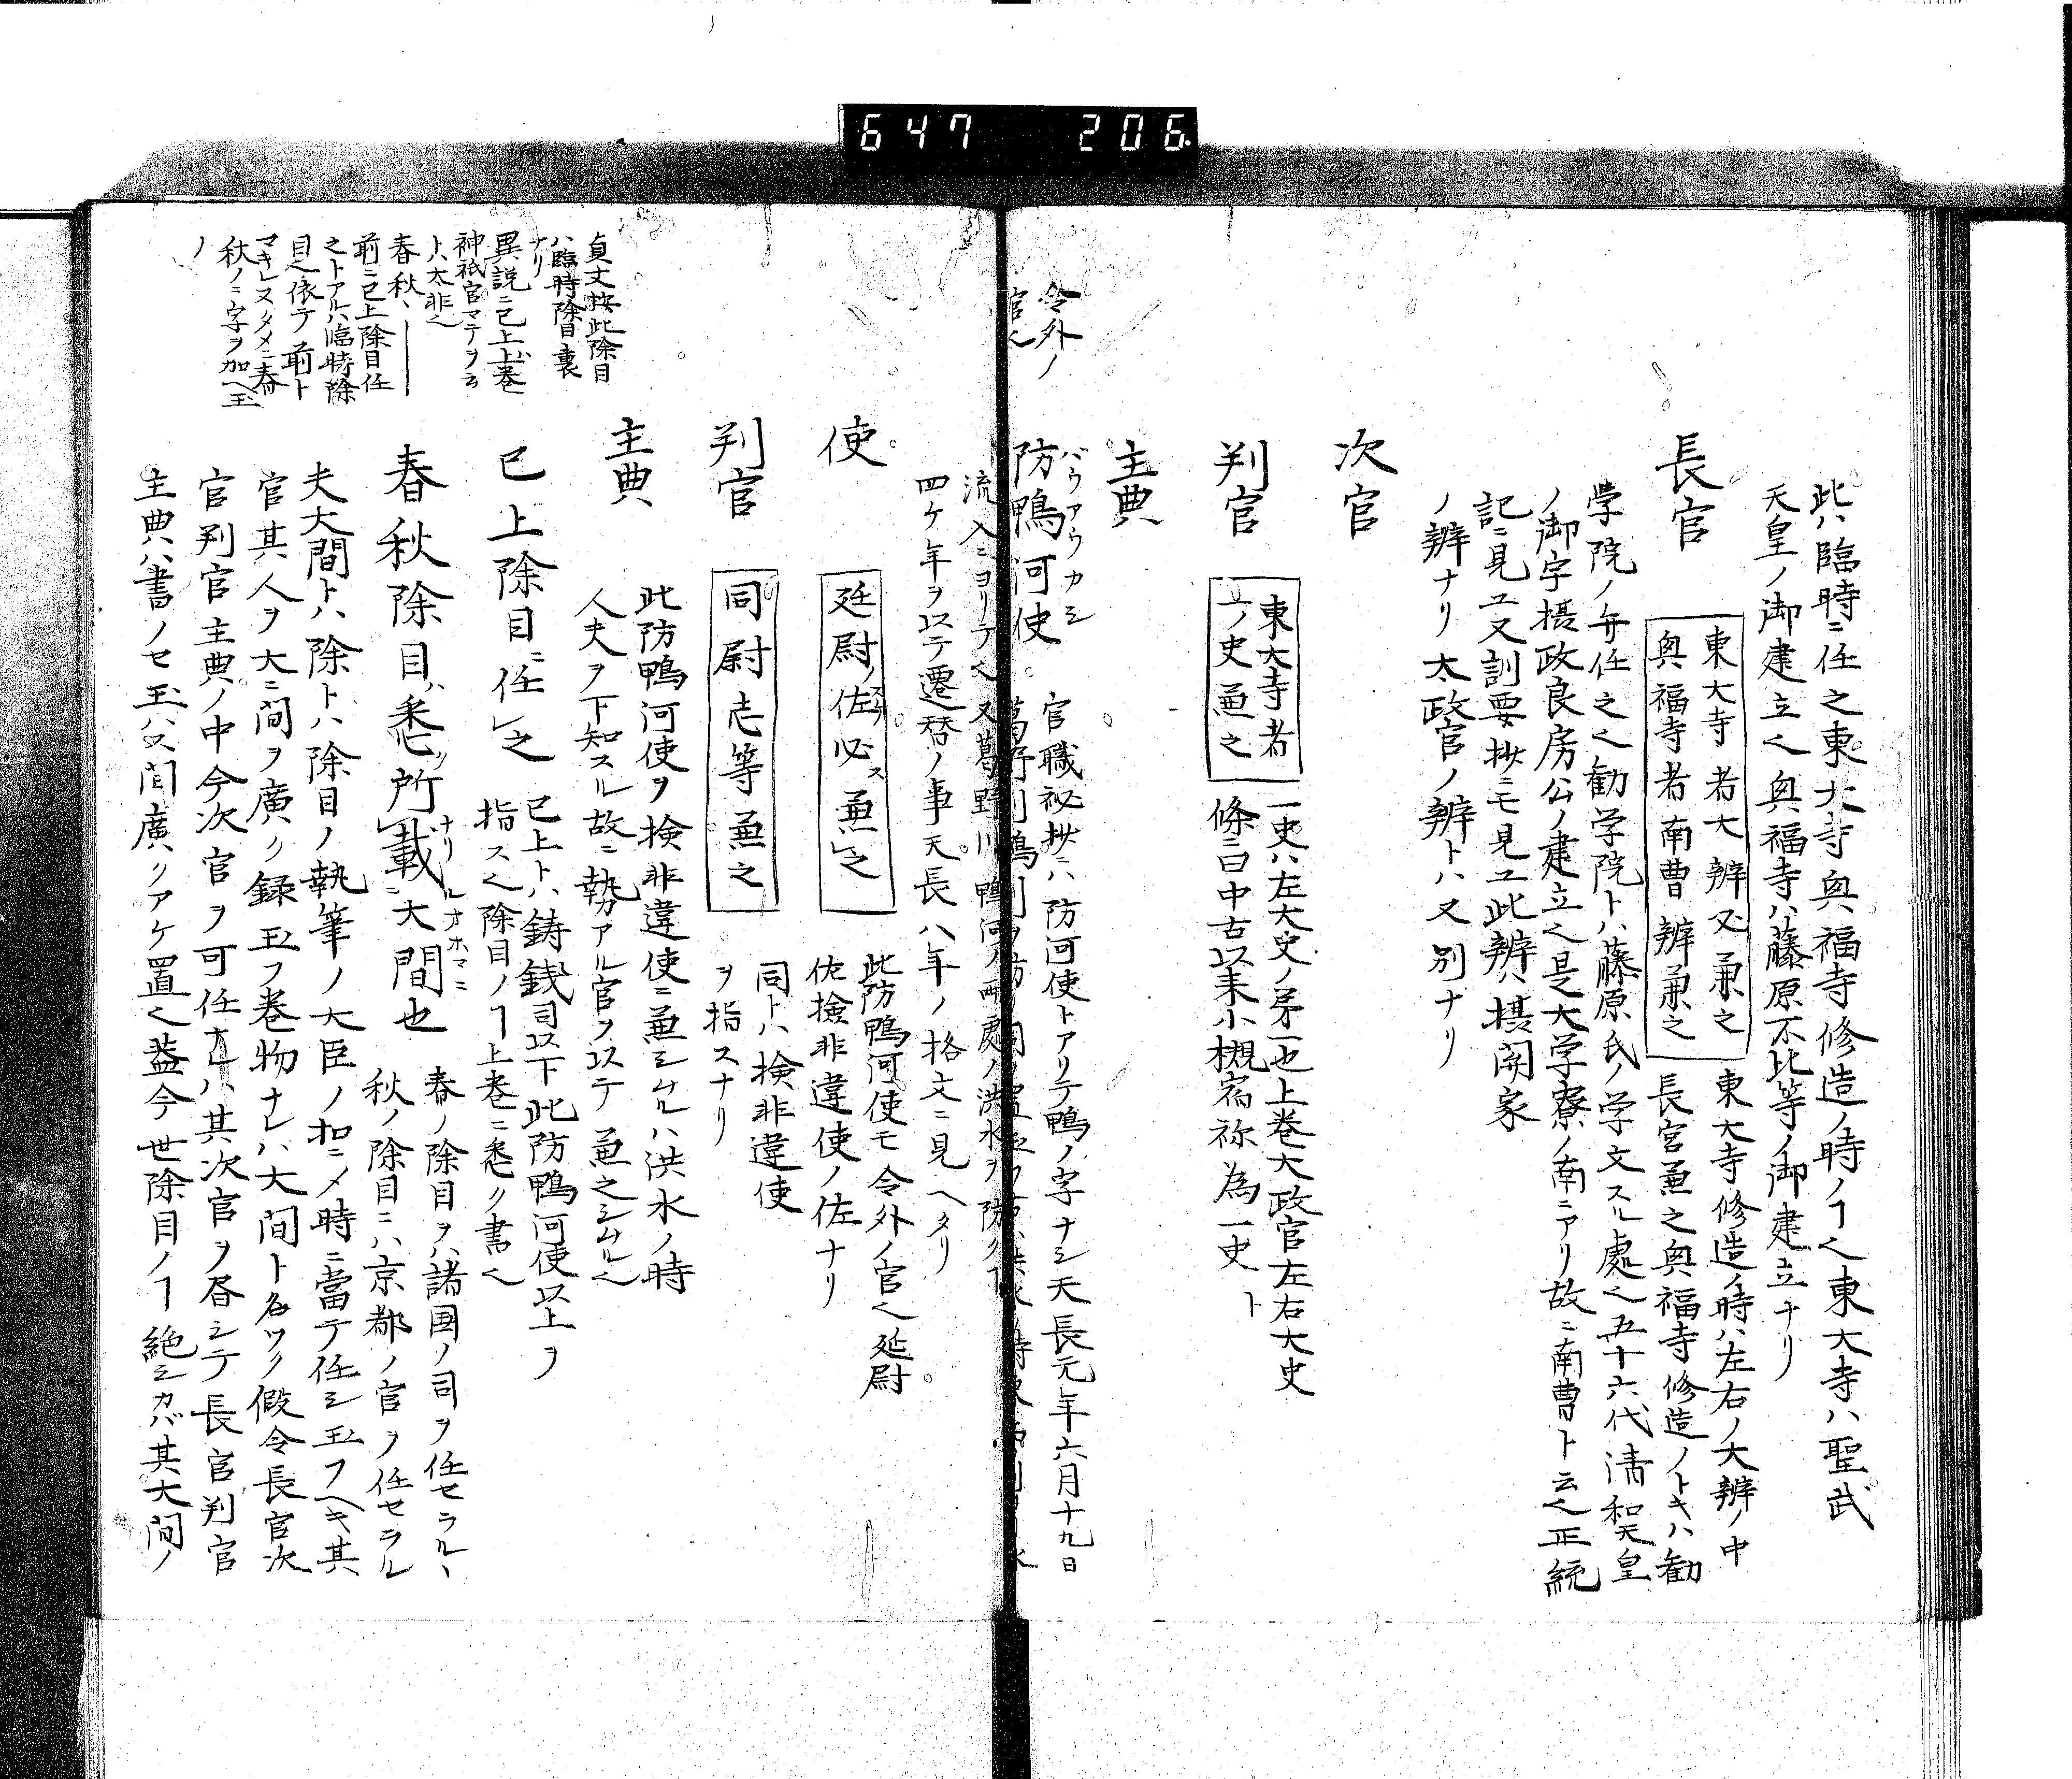 647 206
此ハ臨時ニ任之東大寺興福寺修造ノ時ノヿ也東大寺ハ聖武
天皇ノ御建立也興福寺ハ藤原不比等ノ御建立ナリ
長官
東大寺者大辨必兼之
興福寺者南曹辨兼之
東大寺修造ノ時ハ左右ノ大辨ノ中
長官兼之興福寺修造ノトキハ勧
学院ノ弁任之也勧学院トハ藤原氏ノ学文スル處也五十六代清和天皇
ノ御宇摂政良房公ノ建立也是大学寮ノ南ニアリ故ニ南曹ト云也正統
記ニ見ユ又訓要抄ニモ見ユ此辨ハ摂関家
ノ辨ナリ太政官ノ辨トハ又別ナリ
次官
判官
東大寺者
一ノ史兼之
一史ハ左大史ノ第一也上巻大政官左右大史
條ニ曰中古以来小槻宿祢為一史ト
主典
令外ノ
官也
防鴨河使
バウアウカシ
官職秘抄ニハ防河使トアリテ鴨ノ字ナシ天長元年六月十九日
流入ニヨリテ也又葛野川鴨河ノ両處ノ洪水ヲ防クヿ
四ケ年ヲ以テ遷替ノ事天長八年ノ格文ニ見ヘタリ
使
廷尉ノ佐必ス兼之
此防鴨河使モ令外ノ官也廷尉
佐検非違使ノ佐ナリ
判官
同尉志等兼之
同トハ検非違使
ヲ指スナリ
主典
此防鴨河使ヲ検非違使ニ兼シムルハ洪水ノ時
人夫ヲ下知スル故ニ勢アル官ヲ以テ兼之シムル也
已上除目ニ任之
已上トハ鋳銭司以下此防鴨河使以上ヲ
指ス也除目ノヿ上巻ニ悉ク書也
春秋除目ハ悉ク所載ニ大間也
ナリルオホマニ
春ノ除目ヲハ諸国ノ司ヲ任セラルヽ
秋ノ除目ニハ京都ノ官ヲ任セラル
夫大間トハ除トハ除目ノ執筆ノ大臣ノ扣ニメ時ニ當テ任シ玉フヘキ其
官其人ヲ大ニ間ヲ廣ク録玉フ巻物ナレハ大間ト名ツク假令長官次
官判官主典ノ中今次官ヲ可任ナレハ其次官ヲ畧シテ長官判官
主典ハ書ノセ玉ハス間廣クアケ置也蓋今世除目ノヿ絶シカバ其大間ノ
貞丈按此除目
ハ臨時除目ノ裏
ナリ
異説ニ已上ハ上巻
神祇官マテヲ云
ト大非也
春秋、
前ニ已上除目任
之トアルハ臨時除
目也依テ前ト
マキレヌタメニ春
秋ノ二字ヲ加ヘ玉
ノ